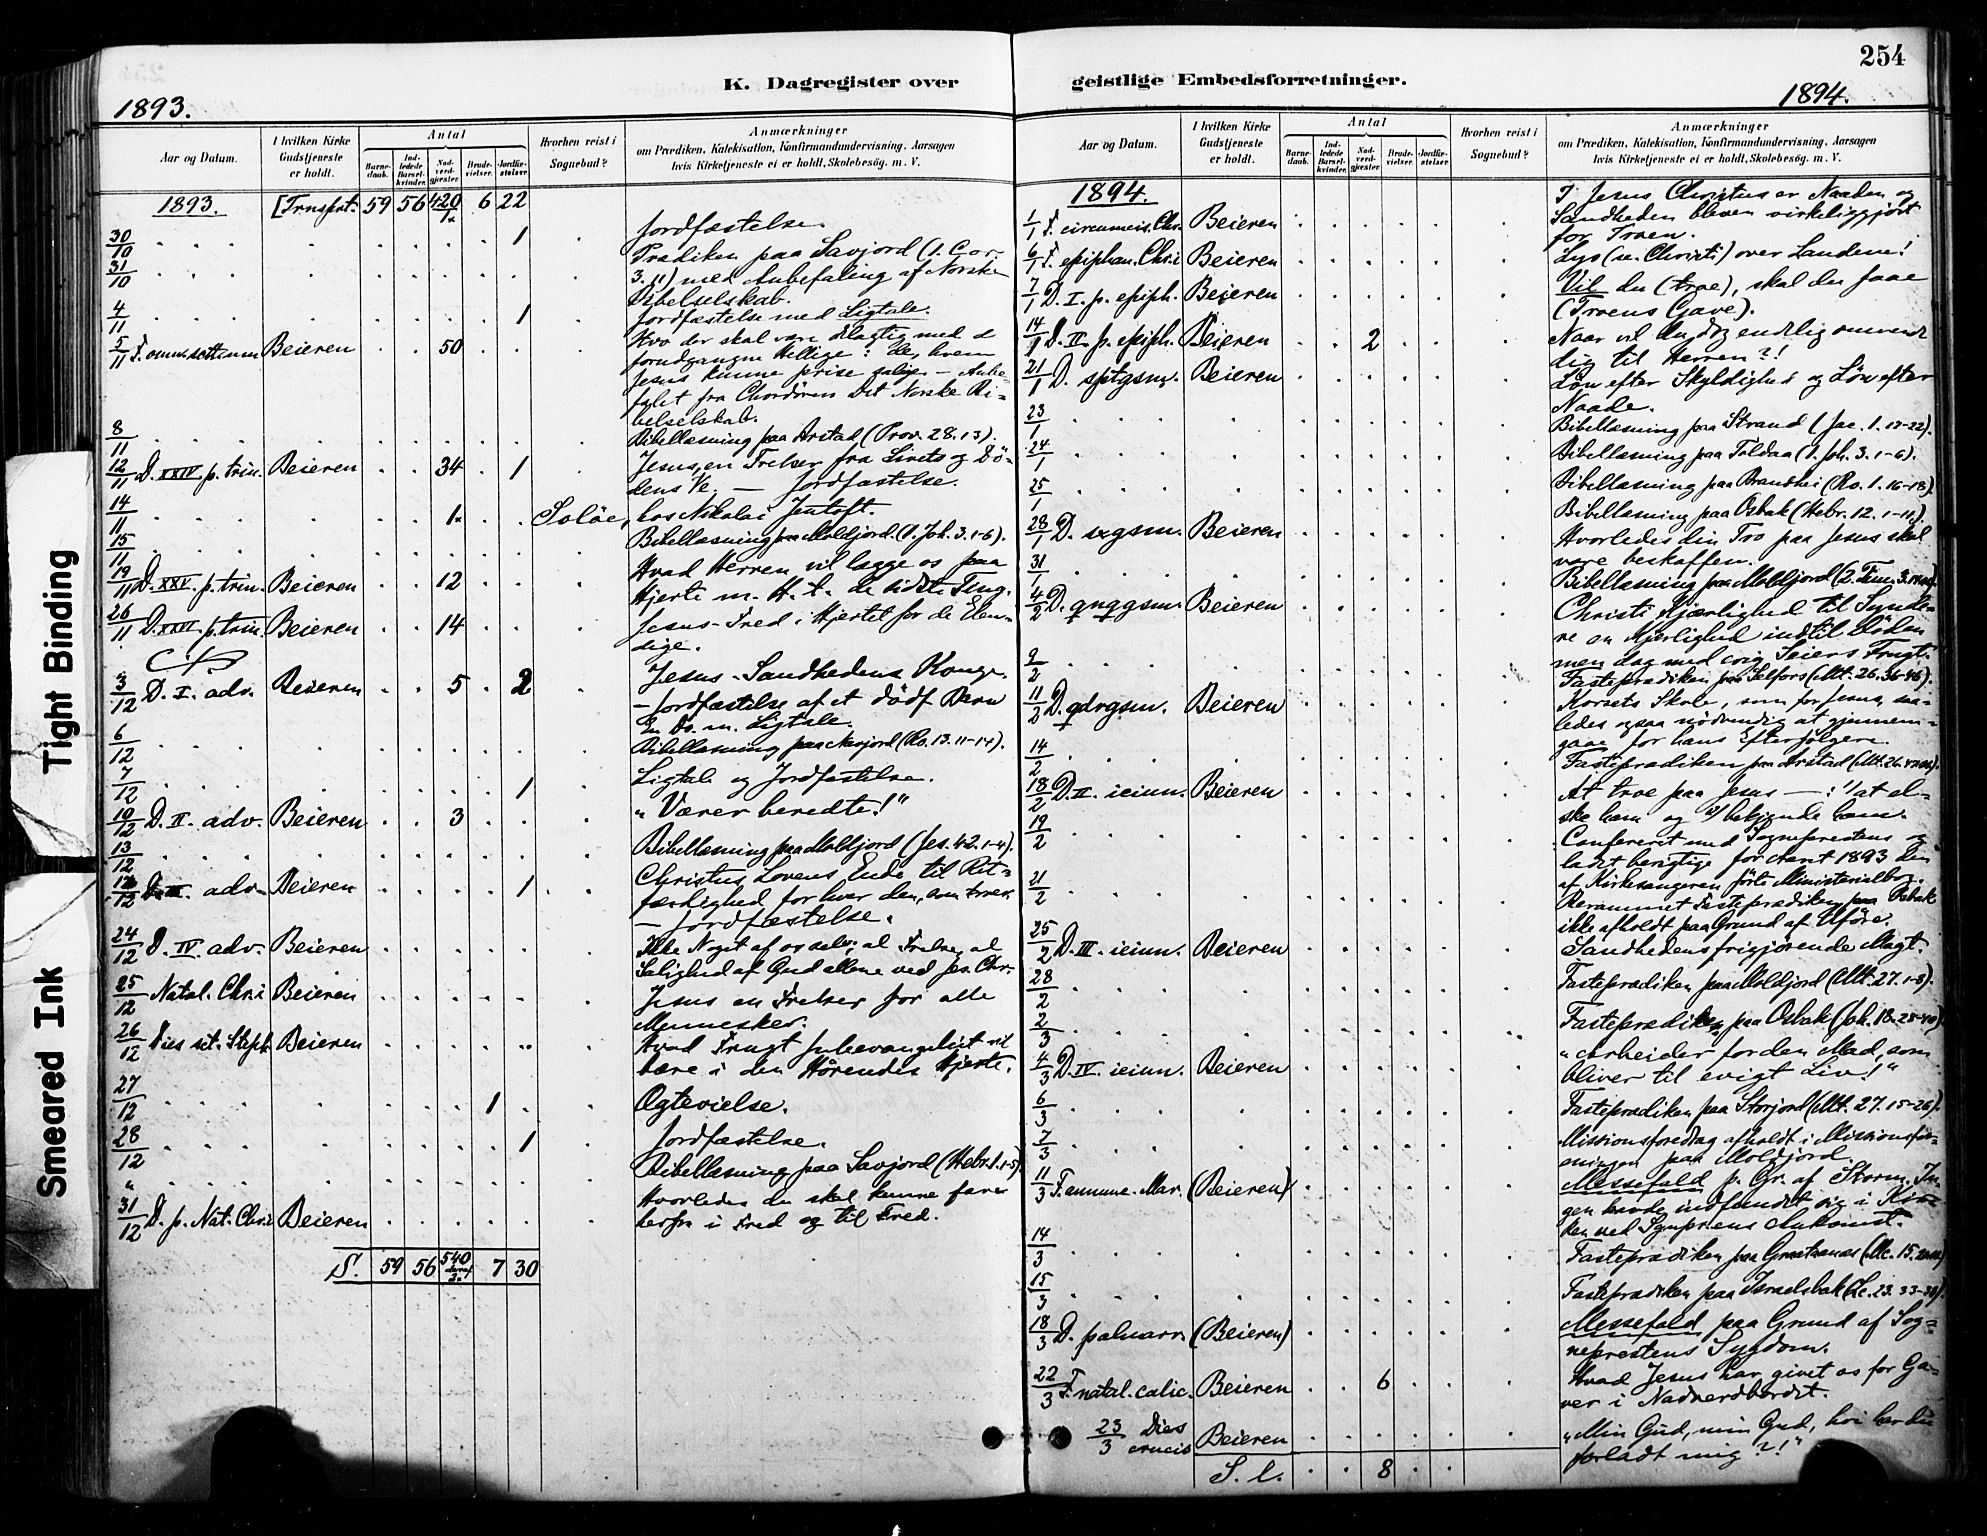 254
K. Dagregister over
geistlige Embedsforretninger.
1893.
Aar og Datum.
I hvilken Kirke Gudstjeneste er holdt.
Antal
Barne-daab.
Ind-ledede Barsel-kvinder.
Nad-verd-gjester.
Brude-vielser.
Jordfæ-stelser.
Hvorhen reist i Sognebud?
Anmærkninger
om Prædiken, Katekisation, Konfirmandundervisning, Aarsagen
hvis Kirketjeneste ei er holdt, Skolebesøg. m. V.
1893. [Trnsprt. 59 56 420 6 22
30/10 1 Jordfæstelse.
31/10 Prædiken paa Savjord (1. Cor.
3. 11) med Anbefaling af Norske
Bibelselskab.
4/11 1 Jordfæstelse med Ligtale.
5/11 F. omn. Beieren 50 Hvo der skal være delagtig med de
forudgangne Hellige: de, hvem
Jesus kunne prise salige – Anbe-
falet fra Chordören Det Norske Bi-
belselskab.
8/11 Bibellæsning paa Arstad (Prov. 28. 13).
12/11 D. XXIV p. trin. Beieren 34 1 Jesus, en Frelser fra Livets og Dö-
dens Ve. — Jordfæstelse.
14/11 1 Solöe, hos Nikolai Jentoft.
15/11 Bibellæsning paa Moldjord. (1. Joh. 3. 1-6).
19/11 D. XXV. p. trin. Beieren 12 Hvad Herren vil lægge os paa
Hjerte m. H. t. de sidste Ting.
26/11 D. XXVI p. trin. Beieren 14 Jesus - Fred i Hjertet for de Elen-
dige.
3/12 D. I. adv. Beieren 5 2 Jesus - Sandhedens Konge.
— Jordfæstelse af et dödf. Barn
En Do. m. Ligtale.
6/12 Bibellæsning paa (Ro. 13. 11-14).
7/12 1 Ligtale og Jordfæstelse.
10/12 D. II. adv. Beieren 3 "Værer beredte!"
13/12 Bibellæsning paa Moldjord (Jes. 42. 1-4).
17/12 D. III. adv. Beieren 1 Christus Lovens Ende til Ret-
færdighed for hver den, som troer
— Jordfæstelse.
24/12 D. IV adv. Beieren Ikke Noget af os selv; al Frelse, al
Salighed af Gud allene ved Jes. Chr.
25/12 Natal. Chr.i Beieren Jesus en Frelser for alle
Mennesker.
26/12 Dies sct. Steph. Beieren Hvad Frugt Juleevangeliet vil
bære i den Hörendes Hjerte.
27/12 1 Ogtevielse.
28/12 1 Jordfæstelse.
" Bibellæsning paa Savjord (Hebr. 1. 1-5)
31/12 D. p. Nat. Chr.i Beieren Hvorledes du skal kunne fare
herfra i Fred og til Fred.
S. 59 56 540 7 30
1894.
Aar og Datum.
I hvilken Kirke Gudstjeneste er holdt.
Antal
Barne-daab.
Ind-ledede Barsel-kvinder.
Nad-verd-gjester.
Brude-vielser.
Jordfæ-stelser.
Hvorhen reist i Sognebud?
Anmærkninger
om Prædiken, Katekisation, Konfirmandundervisning, Aarsagen
hvis Kirketjeneste ei er holdt, Skolebesøg. m. V.
1894.
1/1 F. circumcis. Chr. Beieren I Jesus Christus er Naaden og
Sandheden bleven virkeliggjort
for Troen.
6/1 F. epiphan. Chr.i Beieren Lys (ɔ: Christi) over Landene!
7/1 D. I. p. epiph. Beieren Vil du (troe), skal du faae
(Troens Gave).
14/1 D. II. p. epiph. Beieren 2 Naar vil du dog endelig omvende
dig til Herren?!
21/1 D. sptgsm. Beieren Lön efter Skyldighed og Lön efter
Naade.
23/1 Bibellæsning paa Strand (Jac. 1. 17-22).
24/1 Bibellæsning paa Toldaa (1. Joh. 3. 1-6).
25/1 Bibellæsning paa Brandhei (Ro. 1. 16-18)
Bibellæsning paa Osbak (Hebr. 12. 1-11).
28/1 D. sxgsm. Beieren Hvorledes din Tro paa Jesus skal
være beskaffen.
31/1 Bibellæsning paa Moldjord (2. Tim. 3.
4/2 D. qnqgsm. Beieren Christi Kjærlighed til Synde-
re en Kjærlighed indtil Döden
men dog med evig Seiers Frugt.
9/2 Fasteprædiken paa Selfors (Mt. 26. 36-46).
11/2 D. qdrgsm. Beieren Korsets Skole, som for Jesus, saa-
ledes ogsaa nödvendig at gjennem-
gaae for hans Efterfölgere.
14/2 Fasteprædiken paa Arstad (Mt. 26.
18/2 D. II. ieiun. Beieren At troe paa Jesus — : 1/ at el-
ske ham og 2/ bekjende ham.
19/2 Confereret med Sogneprestens og
ladet berigtige for Aaret 1893 den
af Kirkesangeren förte Ministerialbog.
21/2 Berammet Fasteprædiken paa Osbak
ikke afholdt paa Grund af Uföre.
25/2 D. III. ieiun. Beieren Sandhedens frigjörende Magt.
28/2 Fasteprædiken paa Moldjord (Mt. 27. 1-8).
2/3 Fasteprædiken paa Osbak (Joh. 18. 28-40)
4/3 D. IV. ieiun. Beieren "Arbeider for den Mad, som
bliver til evigt Liv!"
6/3 Fasteprædiken paa Storjord (Mt. 27. 15-26).
7/3 Missionsforedrag afholdt i Missionsfor-
eningen paa Moldjord.
11/3 F. annunc. Mar. (Beieren) Messefald p. Gr. af Storm. In-
gen havde indfundet sig i Kir-
ken ved Sgnprstens Ankomst.
14/3 Fasteprædiken paa (Mc. 15.
15/3 Fasteprædiken paa Israelsbak (Lc. 23. 33-38).
18/3 D. palmarr. (Beieren) Messefald paa Grund af Sog-
neprestens Sygdom.
22/3 F. natal. calic. Beieren 6 Hvad Jesus har givet os for Ga-
ver i Nadverdbordet.
23/3 Dies crucis Beieren "Min Gud, min Gud, hvi har du
forladt mig?!"
S. l. 8
Tight Binding
Smeared Ink